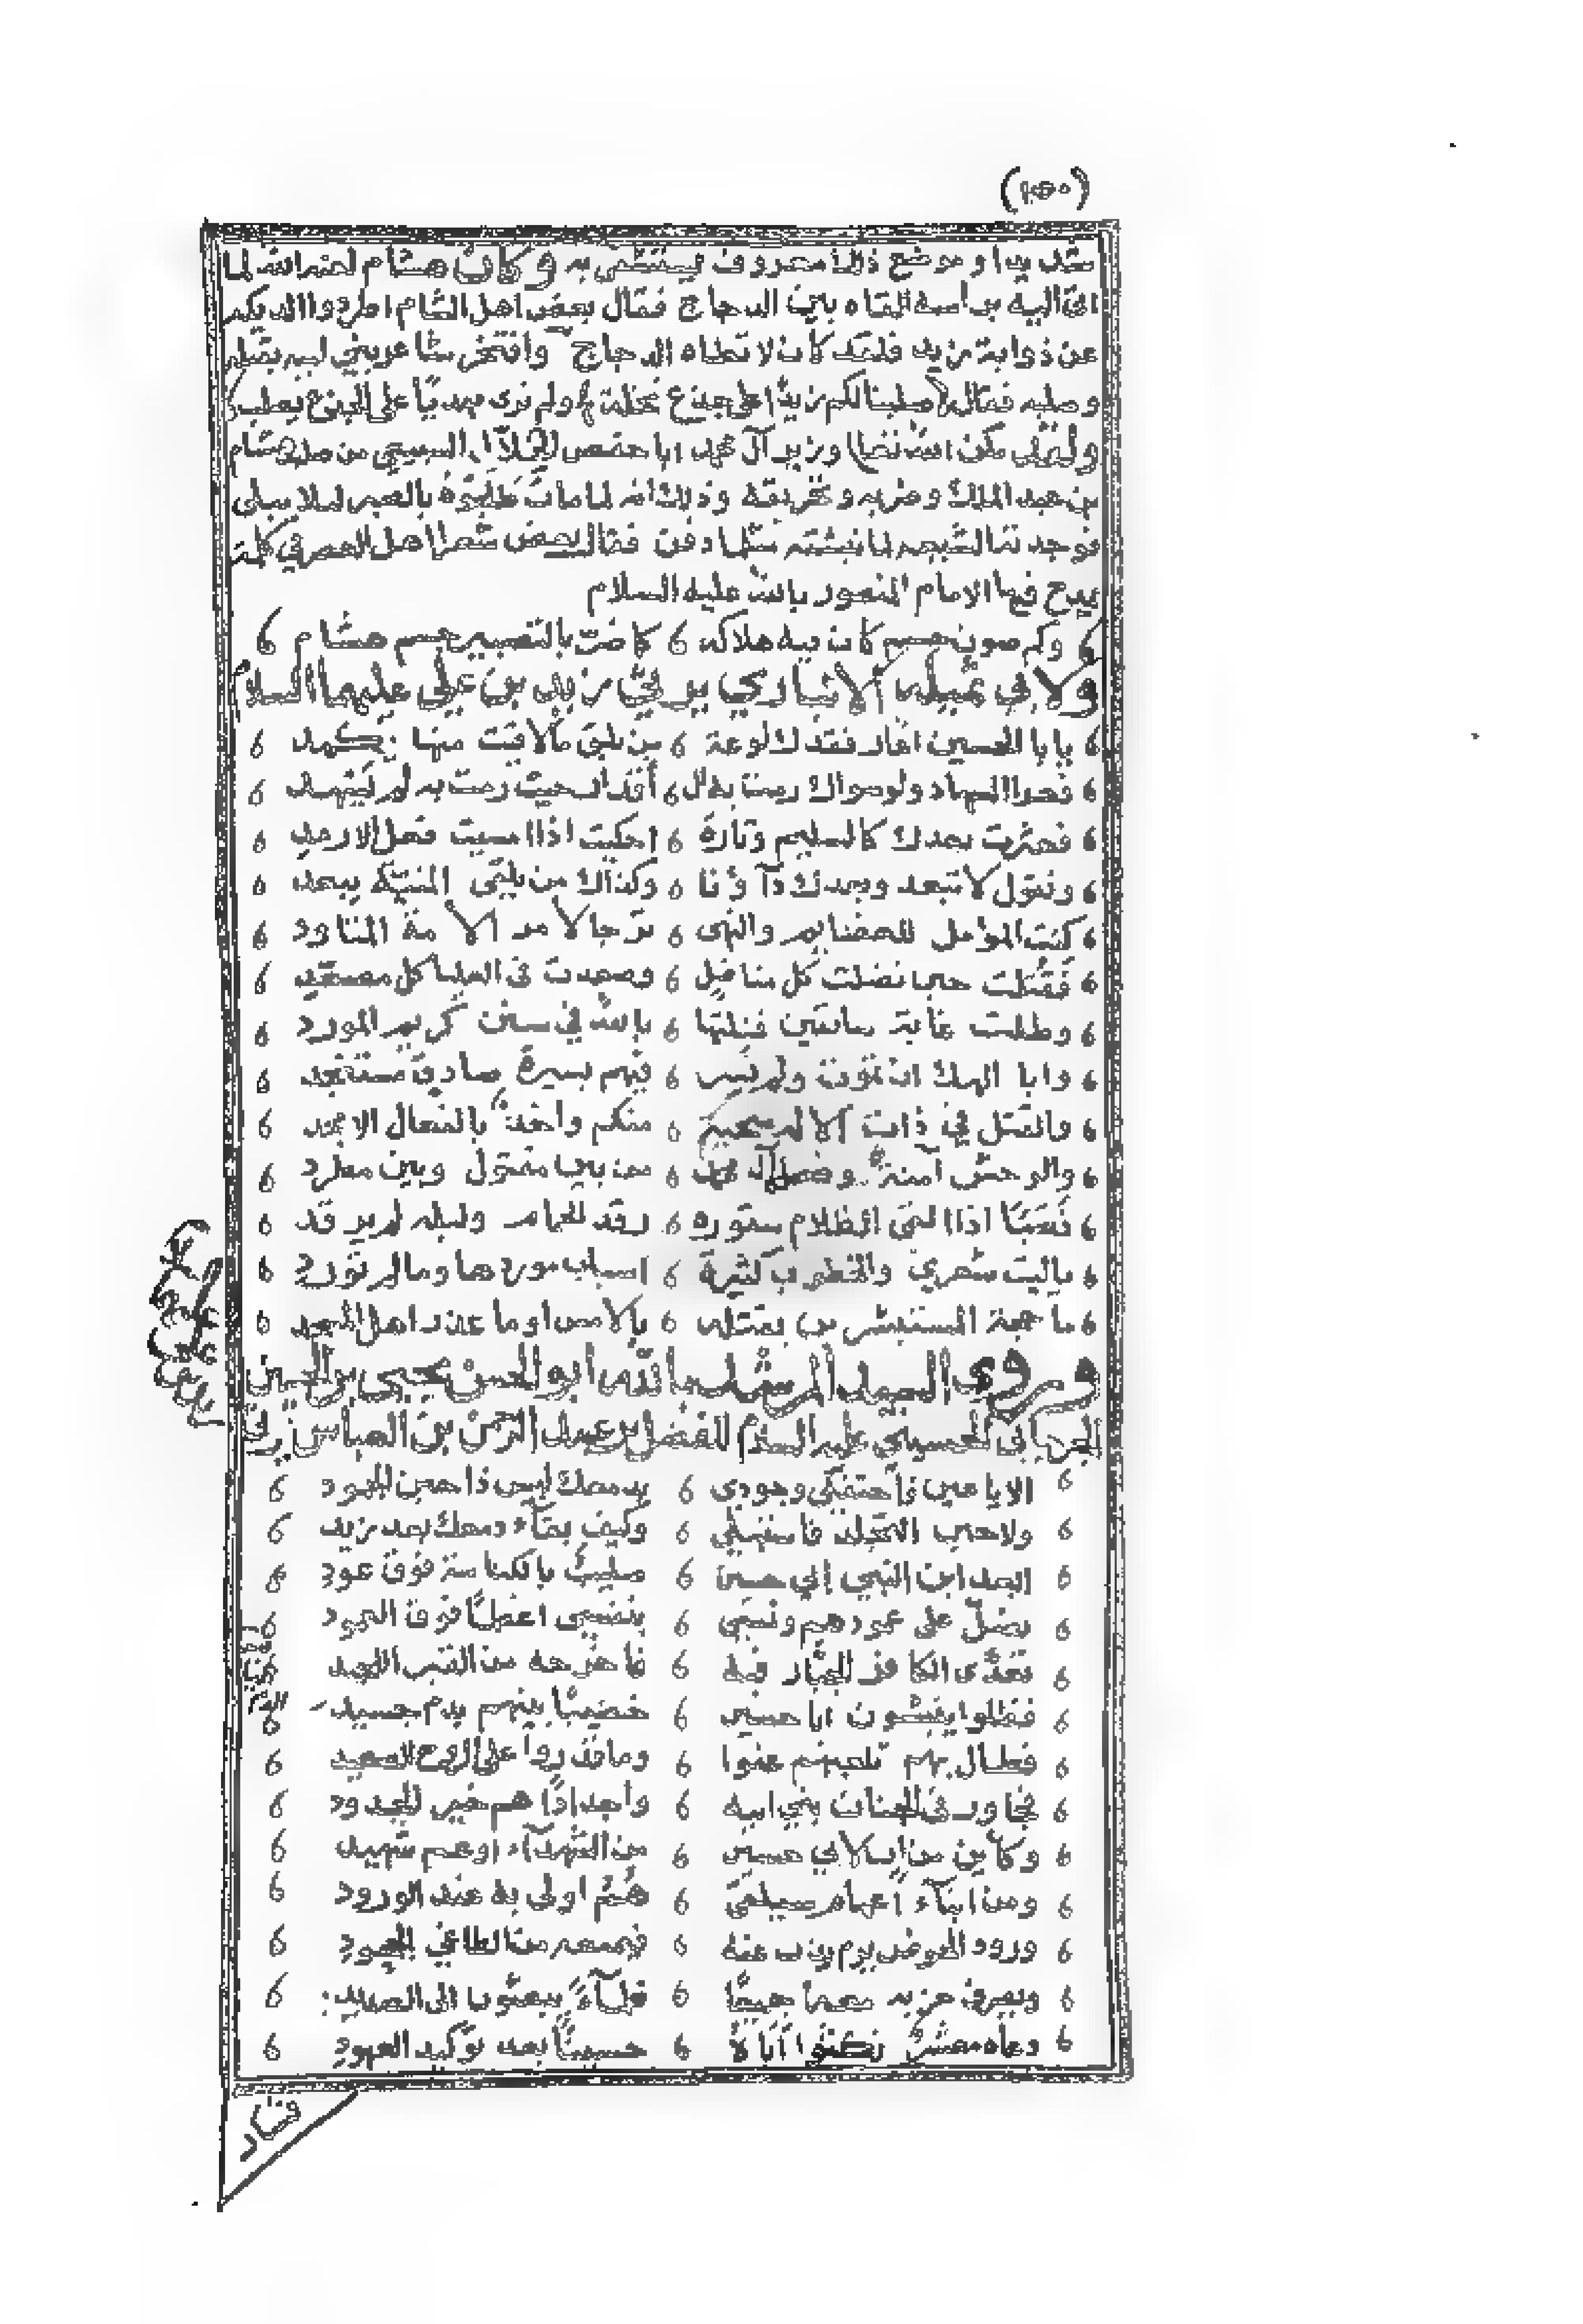 (١٥٠)
يشد بها وموضع ذلك معروف يستشفى به وكان هشام لعنه الله لما
اتى اليه براسه القاه بين الدجاج فقال بعض اهل الشام اطردوا الديكة
عن ذوابة زيد فلقد كان لا تطاه الدجاج وافتخر شاعر بني امية بقتله
وصلبه فقال صلبنا لكم زيدا على جذع نخلة ولم نرى مهديا على الجذع يصلب
وزير آل محمد ابا حفص الخلال السبيعي من هشام
بن عبد الملك وضربه وتحريقه وذلك انه لما مات طلوه بالصبر لئلا يبلى
فوجدته الشيعة لما نبشته مثلما دفن فقال بعض شعرا اهل العصر في كلمة
يمدح فيها الامام المنصور بالله عليه السلام
وكم صون جسم كان فيه هلاكه كما ضر بالتصبير جسم هشام
ولابي ثميلة الابار يرثي زيد بن علي عليهما السلام
يابا الحسين اعار فقدك لوعة من يلق ما لاقيت منها يكمد
فعرا السهاد ولو سواك رمت به ال أقدار حيث رمت به لم يشهد
فغبرت بعدك كالسليم وتارة احكي اذا امسيت فعل الارمد
ونقول لا تبعد وبعدك داؤنا وكذاك من يلقى المنية يبعد
كنت المؤمل للعظايم والنهى ترجا لامر الامة المتاود
فقتلت حين نضلت كل مناضل وصعدت في العليا كل مصعد
وطلبت غاية سابقين فنلتها بالله في سنن كريم المورد
وابا الهك ان تموت ولم تسر فيهم بسيرة صادق مستنجد
والقتل في ذات الاله سجية منكم واخذ بالفعال الامجد
والوحش آمنة وآل محمد من بين مقتول وبين مطرد
نصبا اذا القى الظلام ستوره رقد الحمام وليلهم لم يرقد
ياليت شعري والخطوب كثيرة اسباب موردها وما لم تورد
ما حجة المستبشرين بقتله بالامس او ما عذر اهل المسجد
وروى السيد المرشد بالله ابو الحسن يحيى بن الحسين
الجرجاني الحسيني عليه السلام للفضل بن عبد الرحمن بن العباس يرثي
الا ياعين لا ترقي وجودي بدمعك ليس ذا حين الجمود
ولاحين التجلد فاستهلي وكيف بقآء دمعك بعد زيد
ابعد ابن النبي ابي حسين صليب بالكناسة فوق عود
يظل على عودهم ويمسي بنفسي اعظما فوق العمود
تعدى الكافر الجبار فيه فاخرجه من القبر اللحيد
فظلوا ينبشون ابا حسين خضيبا بينهم بدم جسيد
فطال بهم تلعبهم عتوا وما قدروا على الروح الصعيد
فجاور في الجنان بني ابيه واجدادا هم خير الجدود
وكأين من اب لابي حسين من الشهدآء او عم شهيد
ومن ابنآء اعمام سيلقى هم اولى به عند الورود
ورود الحوض يوم يذب عنه فيمنعه من الطاغي الجحود
ويصرف حزبه معه جميعا
دعاه معشر نكثوا اباه حسينا بعد توكيد العهود
فتاد